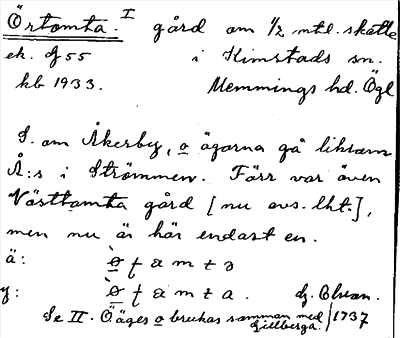 Örtomta. I gård om 1/2 mtl. skatte
ek. Df 55 i Kimstads sn.
kb 1933. Memmings hd. Ögl
S. om Åkerby, o ägorna gå liksom
Å:s i Strömmen. Förr var även
Västtomta gård [nu avs. lht.],
men nu är här endast en.
ä:
y: dz.
Se II. Ö äges o brukas samman med 1737
Gillberga.